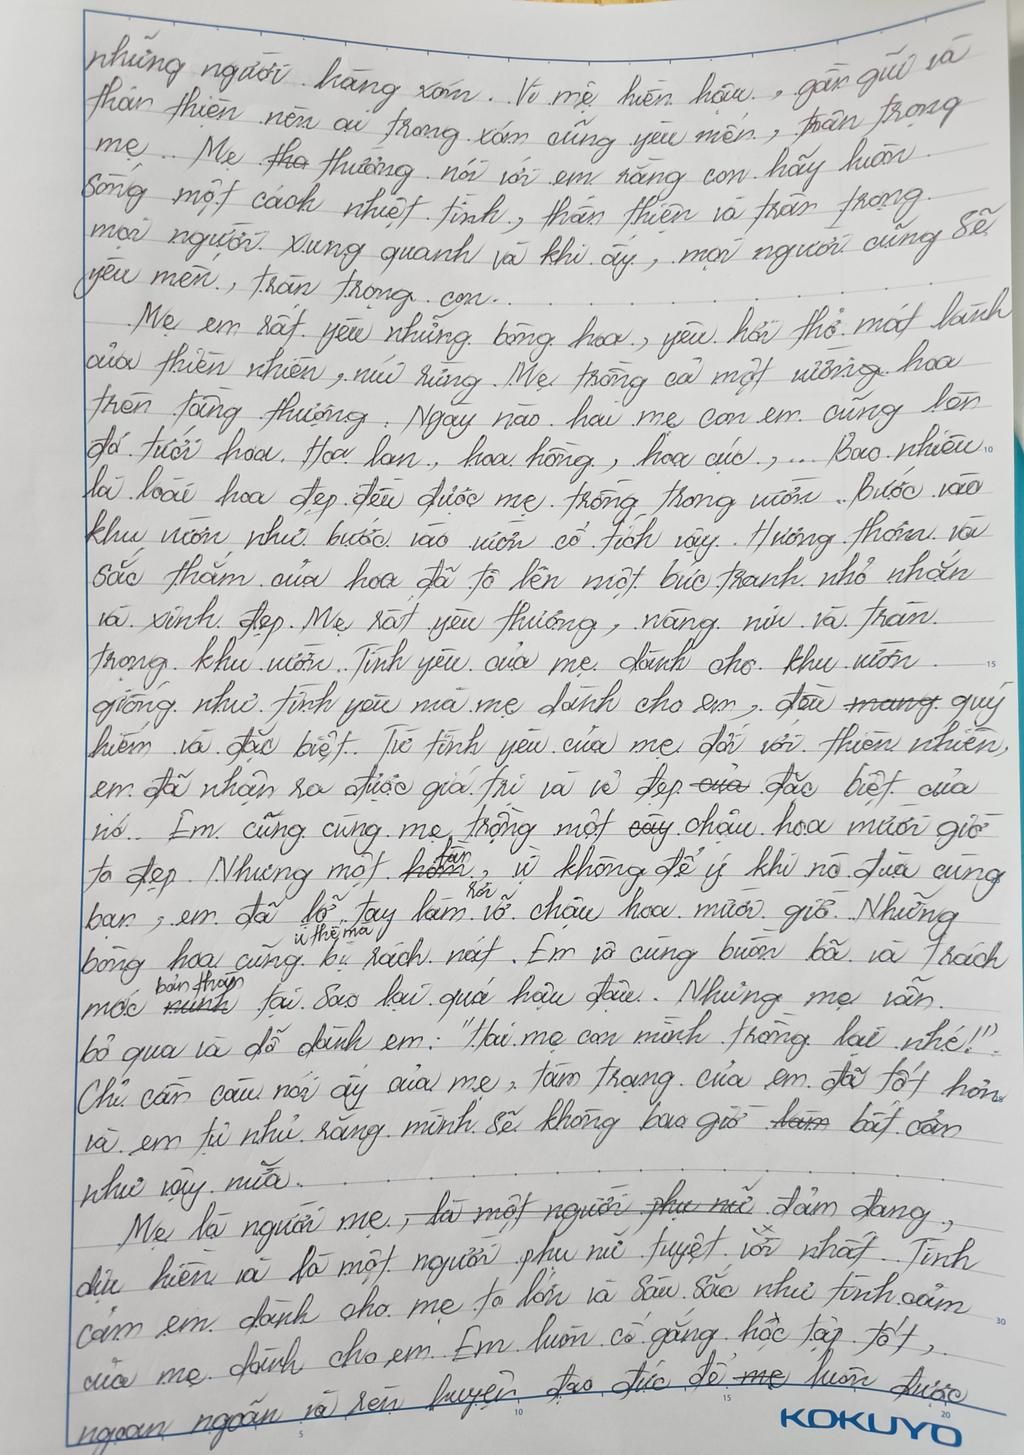 những người hàng xóm. Vì mẹ hiền hậu, gần gũi và
thân thiện nên ai trong xóm cũng yêu mến, trân trọng
mẹ. Mẹ tha thường nói với em rằng con hãy luôn
sống một cách nhiệt tình, thân thiện và trân trọng
mọi người xung quanh và khi ấy, mọi người cũng sẽ
yêu mến, trân trọng con.
Mẹ em rất yêu những bông hoa, yêu hơi thở mát lành
của thiên nhiên, núi rừng. Mẹ trồng cả một vườn hoa
trên tầng thượng. Ngày nào hai mẹ con em cũng lên
đó tưới hoa. Hoa lan, hoa hồng, hoa cúc,... Bao nhiêu 10
là loài hoa đẹp đều được mẹ trồng trong vườn. Bước vào
khu vườn như bước vào vườn cổ tích vậy. Hương thơm và
sắc thắm của hoa đã tô lên một bức tranh nhỏ nhắn
và xinh đẹp. Mẹ rất yêu thương, nâng niu và trân
trọng khu vườn. Tình yêu của mẹ dành cho khu vườn 15
giống như tình yêu mà mẹ dành cho em, đều mang quý
hiếm và đặc biệt. Từ tình yêu của mẹ đối với thiên nhiên,
em đã nhận ra được giá trị và vẻ đẹp của đặc biệt của
nó. Em cũng cùng mẹ trồng một cây chậu hoa mười giờ
to đẹp. Nhưng một hôm lần, vì không để ý khi nô đùa cùng
bạn, em đã lỡ tay làm rơi vỡ chậu hoa mười giờ. Những
bông hoa cũng vì thế mà bị rách nát. Em vô cùng buồn bã và trách
móc mình bản thân tại sao lại quá hậu đậu. Nhưng mẹ vẫn
bỏ qua và dỗ dành em: "Hai mẹ con mình trồng lại nhé!".
Chỉ cần câu nói ấy của mẹ, tâm trạng của em đã tốt hơn
và em tự nhủ rằng mình sẽ không bao giờ làm bất cẩn
như vậy nữa.
Mẹ là người mẹ, là một người phụ nữ đảm đang,
dịu hiền và là một người phụ nữ tuyệt vời nhất. Tình
cảm em dành cho mẹ to lớn và sâu sắc như tình cảm 30
của mẹ dành cho em. Em luôn cố gắng học tập tốt,
ngoan ngoãn và rèn luyện đạo đức để mẹ luôn được
5 10 15 20
KOKUYO